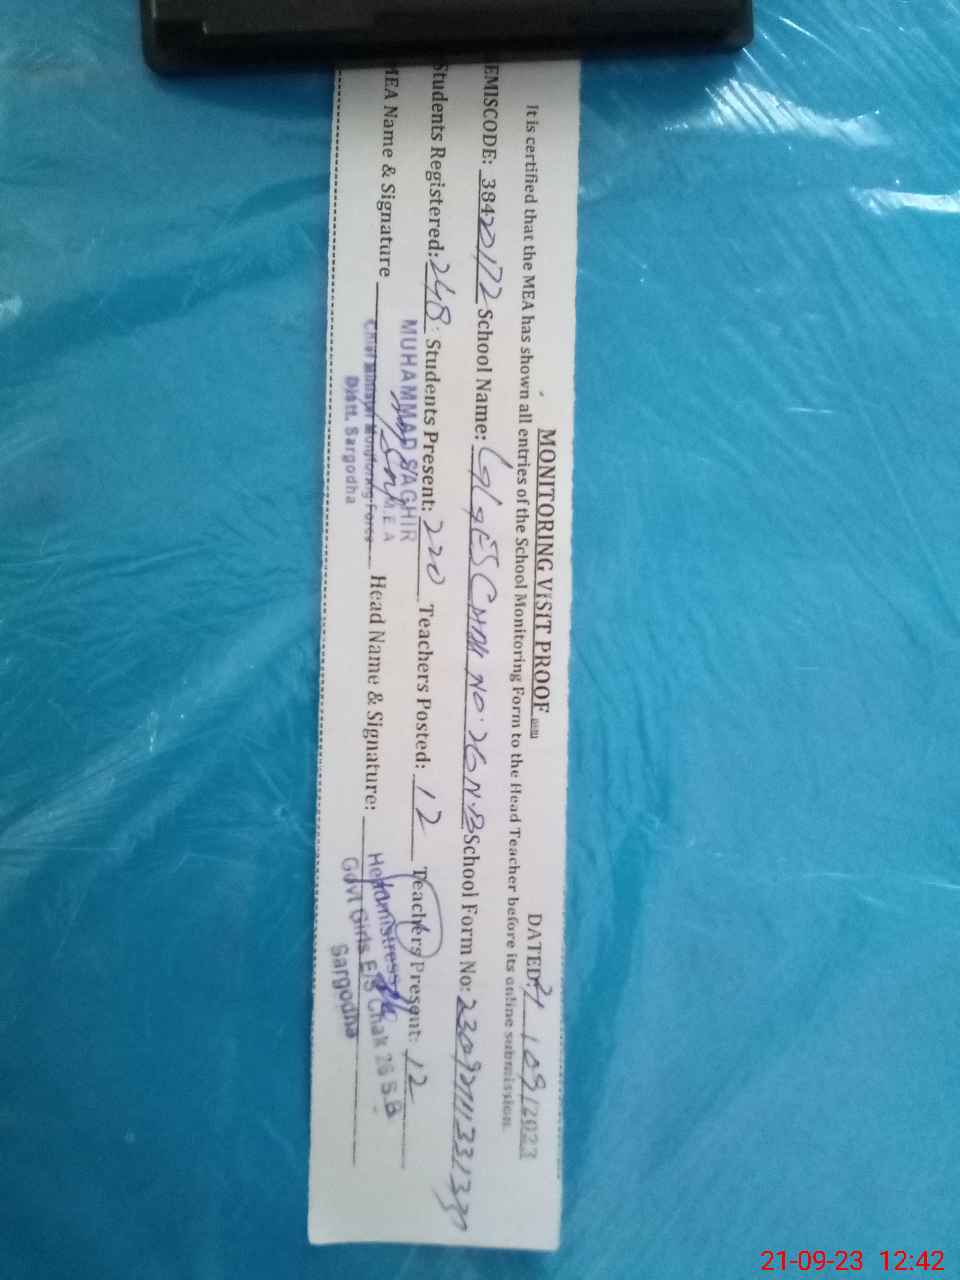 MONITORING VISIT PROOF
DATED: 21/09/2023
It is certified that the MEA has shown all entries of the School Monitoring Form to the Head Teacher before its online submission.
EMISCODE: 38420172 School Name: GGES Chak No. 26 N.B School Form No:
Students Registered: 248 Students Present: 220 Teachers Posted: 12 Teachers Present: 12
MEA Name & Signature Head Name & Signature:
MUHAMMAD SAGHIR
M.E.A
Chief Minister Monitoring Force
Distt. Sargodha
Headmistress
Govt Girls E/S Chak 26 S.B
Sargodha
21-09-23 12:42